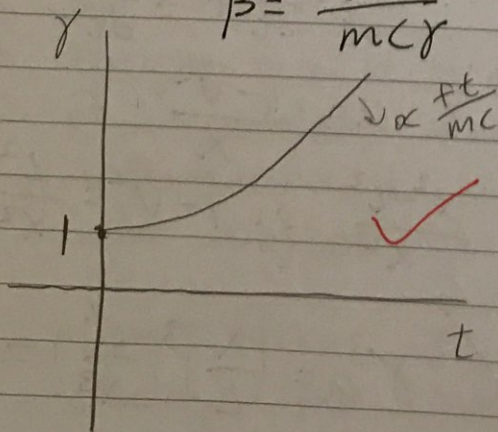 γ
β =
mcγ
∝ ft/mc
1
t